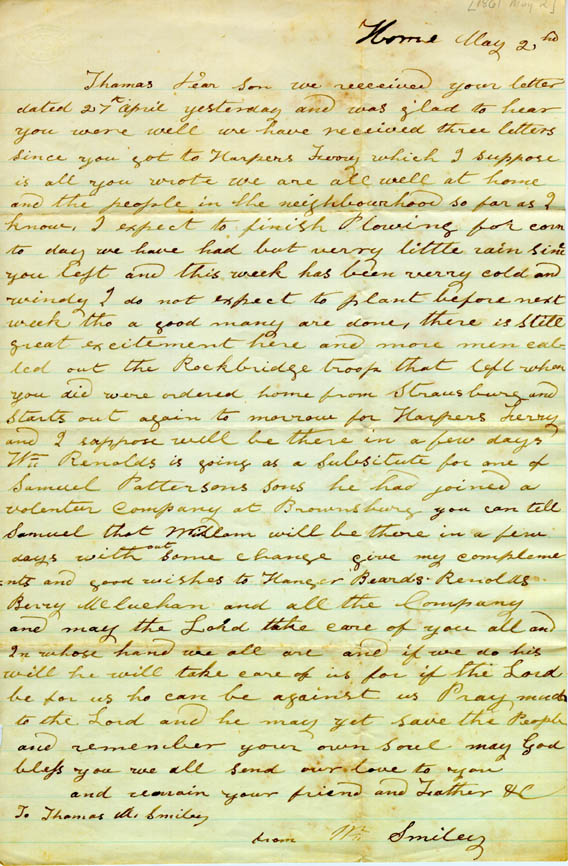 [1861 May 2]
Home May 2nd
Thomas Dear Son we receeved your letter
dated 27th April yesterday and was glad to hear
you were well we have received three letters
since you got to Harpers Ferry which I suppose
is all you wrote we are all well at home
and the people in the neighbourhood so far as I
know, I expect to finish Plowing for corn
to day we have had but verry little rain since
you left and this week has been verry cold and
windy I do not expect to plant before next
week tho a good many are done, there is still
great excitement here and more men cal-
led out the Rockbridge troop that left when
you did were ordered home from Strausburg and
Starts out again to morrow for Harpers ferry
and I suppose will be there in a few days
Wm Renolds is going as a Subsitute for one of
Samuel Pattersons sons he had joined a
volenter company at Brownsburg you can tell
Samuel that William will be there in a few
days with out some change give my compleme
=nts and good wishes to Hanger Beards Renolds
Berry McCuchan and all the Company
and may the Lord take care of you all and
In whose hand we all are and if we do his
will he will take care of us for if the Lord
be for us ho can be against us Pray much
to the Lord and he may yet save the People
and remember your own soul may God
bless you we all send our love to you
and remain your friend and Father &C
To Thomas M. Smiley
from Wm Smiley